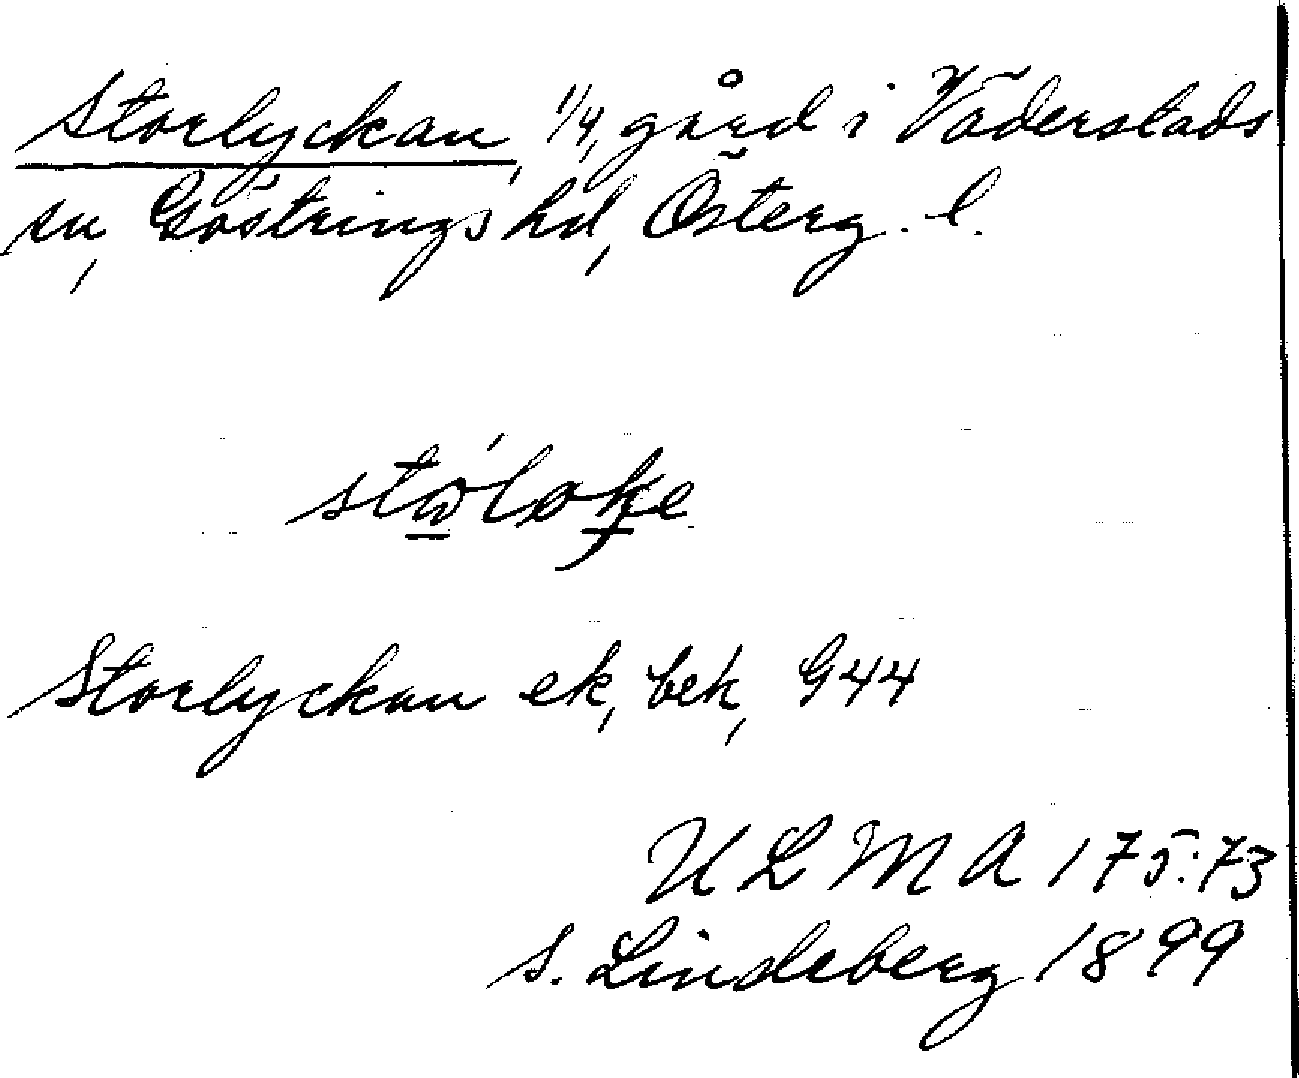 Storlyckan, 1/4, gård i Väderstads
sn, Göstrings hd, Österg. l.
Storlyckan ek, bek, G44
ULMA 175:73
S. Lindeberg 1899